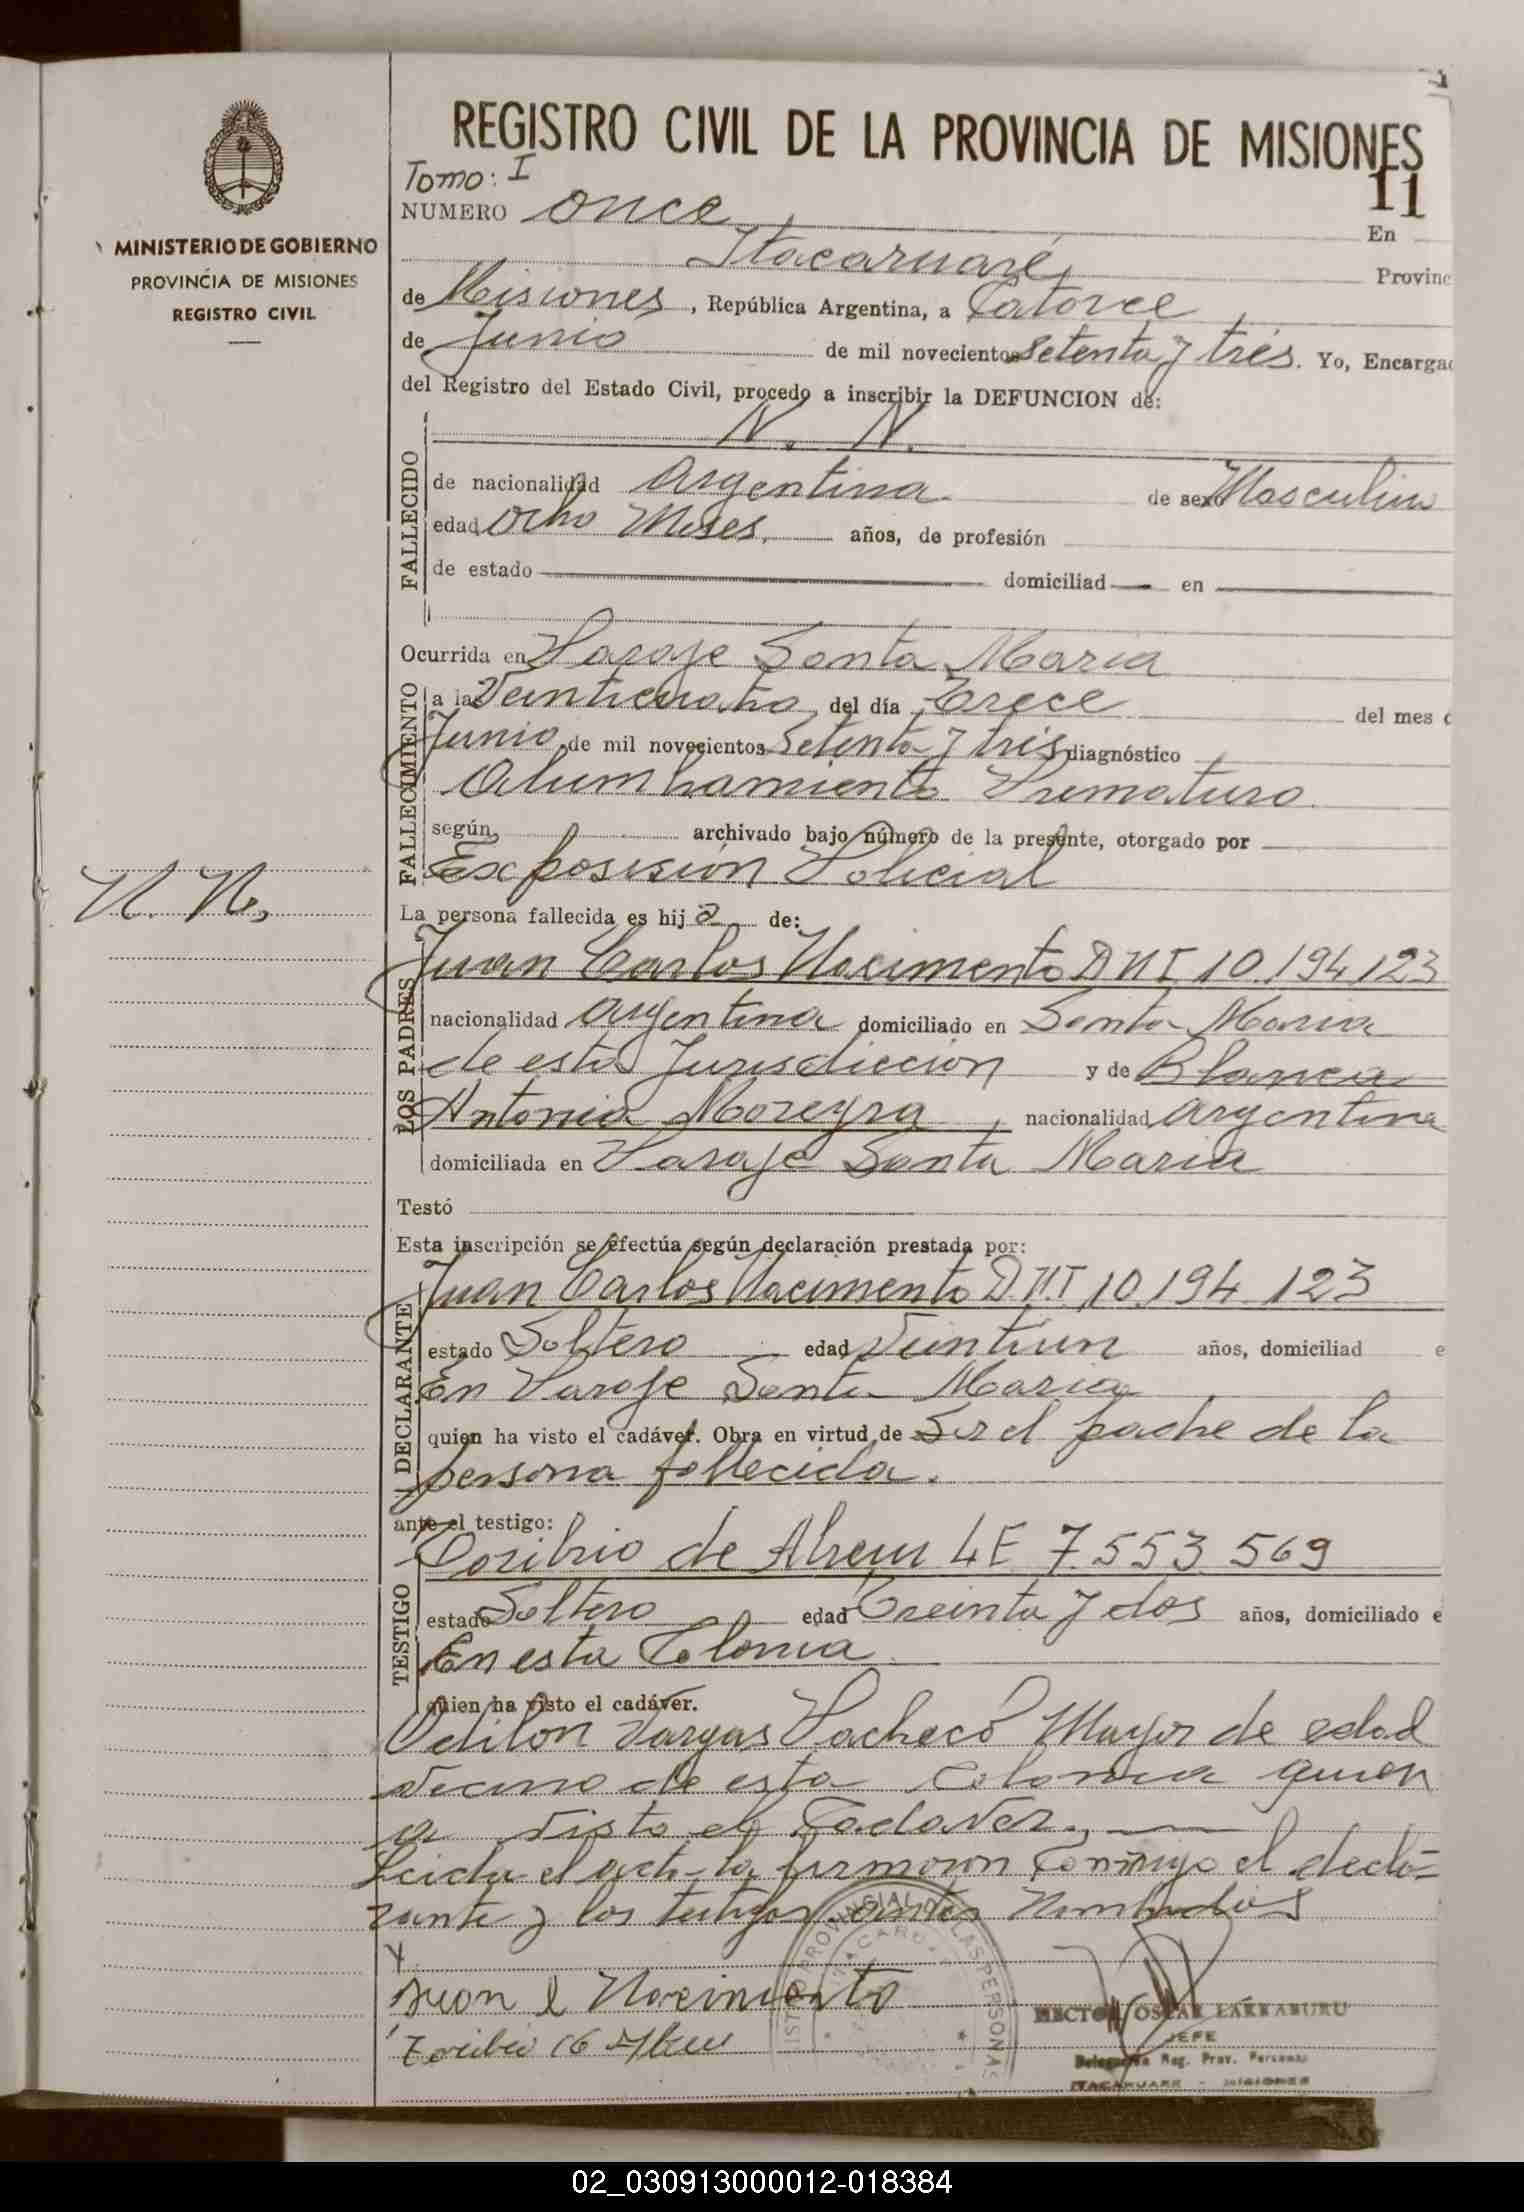 REGISTRO CIVIL DE LA PROVINCIA DE MISIONES
Tomo: I
11
NUMERO once En
Itacaruaré, Provinc
MINISTERIO DE GOBIERNO
PROVINCIA DE MISIONES
REGISTRO CIVIL
de Misiones, República Argentina, a Catorce
de Junio de mil novecientos setenta y tres. Yo, Encargad
del Registro del Estado Civil, procedo a inscribir la DEFUNCION de:
N. N.
FALLECIDO
de nacionalidad Argentina de sexo Masculino
edad Ocho Meses, años, de profesión
de estado domiciliad en
Ocurrida en Paraje Santa Maria
FALLECIMIENTO
a las Veinticuatro del día Trece del mes d
Junio de mil novecientos Setenta y tres diagnóstico
Alumbramiento Prematuro
según archivado bajo número de la presente, otorgado por
Exposision Policial
N. N.
La persona fallecida es hijo de:
LOS PADRES
Juan Carlos Nacimento DNI 10.194.123
nacionalidad Argentina domiciliado en Santa Maria
de esta Jurisdiccion y de Blanca
Antonia Moreyra, nacionalidad argentina
domiciliada en Paraje Santa Maria
Testó
Esta inscripción se efectúa según declaración prestada por:
DECLARANTE
Juan Carlos Nacimento D.N.I. 10.194.123
estado Soltero edad Veintiun años, domiciliad e
En Paraje Santa Maria
quien ha visto el cadáver. Obra en virtud de Ser el padre de la
persona fallecida.
ante el testigo:
TESTIGO
Toribio de Abreu LE 7.553.569
estado Soltero edad Treinta y dos años, domiciliado e
En esta Colonia
quien ha visto el cadáver.
Odilon Vargas Pacheco Mayor de edad
vecino de esta Colonia quien
a visto el Cadaver,
Leida el acta la firmaron Conmigo el decla=
rante y los testigos antes Nombrados
Juan C Nacimento
Toribio Abreu
HECTOR OSCAR LARRABURU
JEFE
Delegación Reg. Prov. Personas
ITACARUARE - MISIONES
02_030913000012-018384